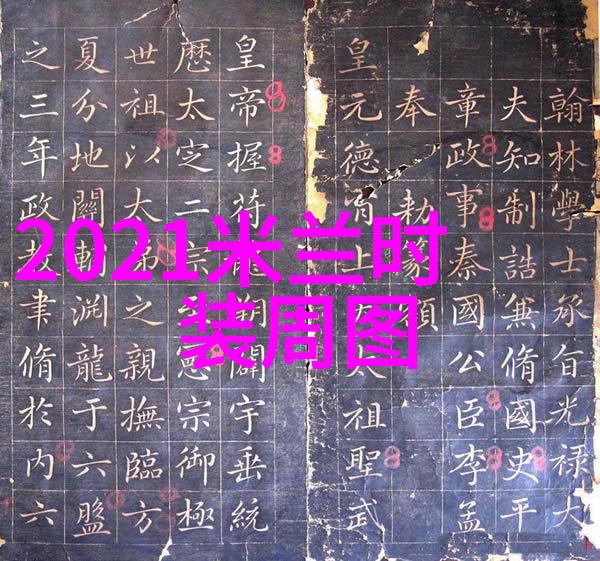 2021米兰时
装周图
翰林學士承旨光禄大
夫知制誥兼脩國史平
章政事秦國公臣李孟
奉勅篆額
皇元德上太祖聖武
皇帝握符朔闢宇垂統
厯太定二宗憲宗御極
世祖以太弟之親撫臨方
夏分地關淵龍于六盤
之三年政教聿脩於内六